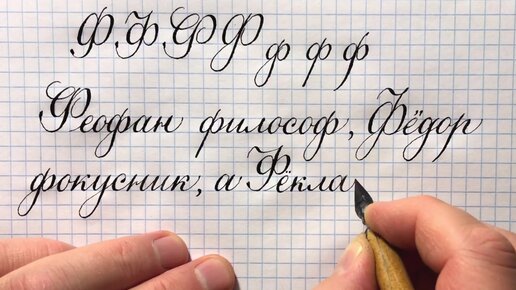 Ф Ф Ф Ф ф ф ф
Феофан философ, Фёдор
фокусник, а Фёкла